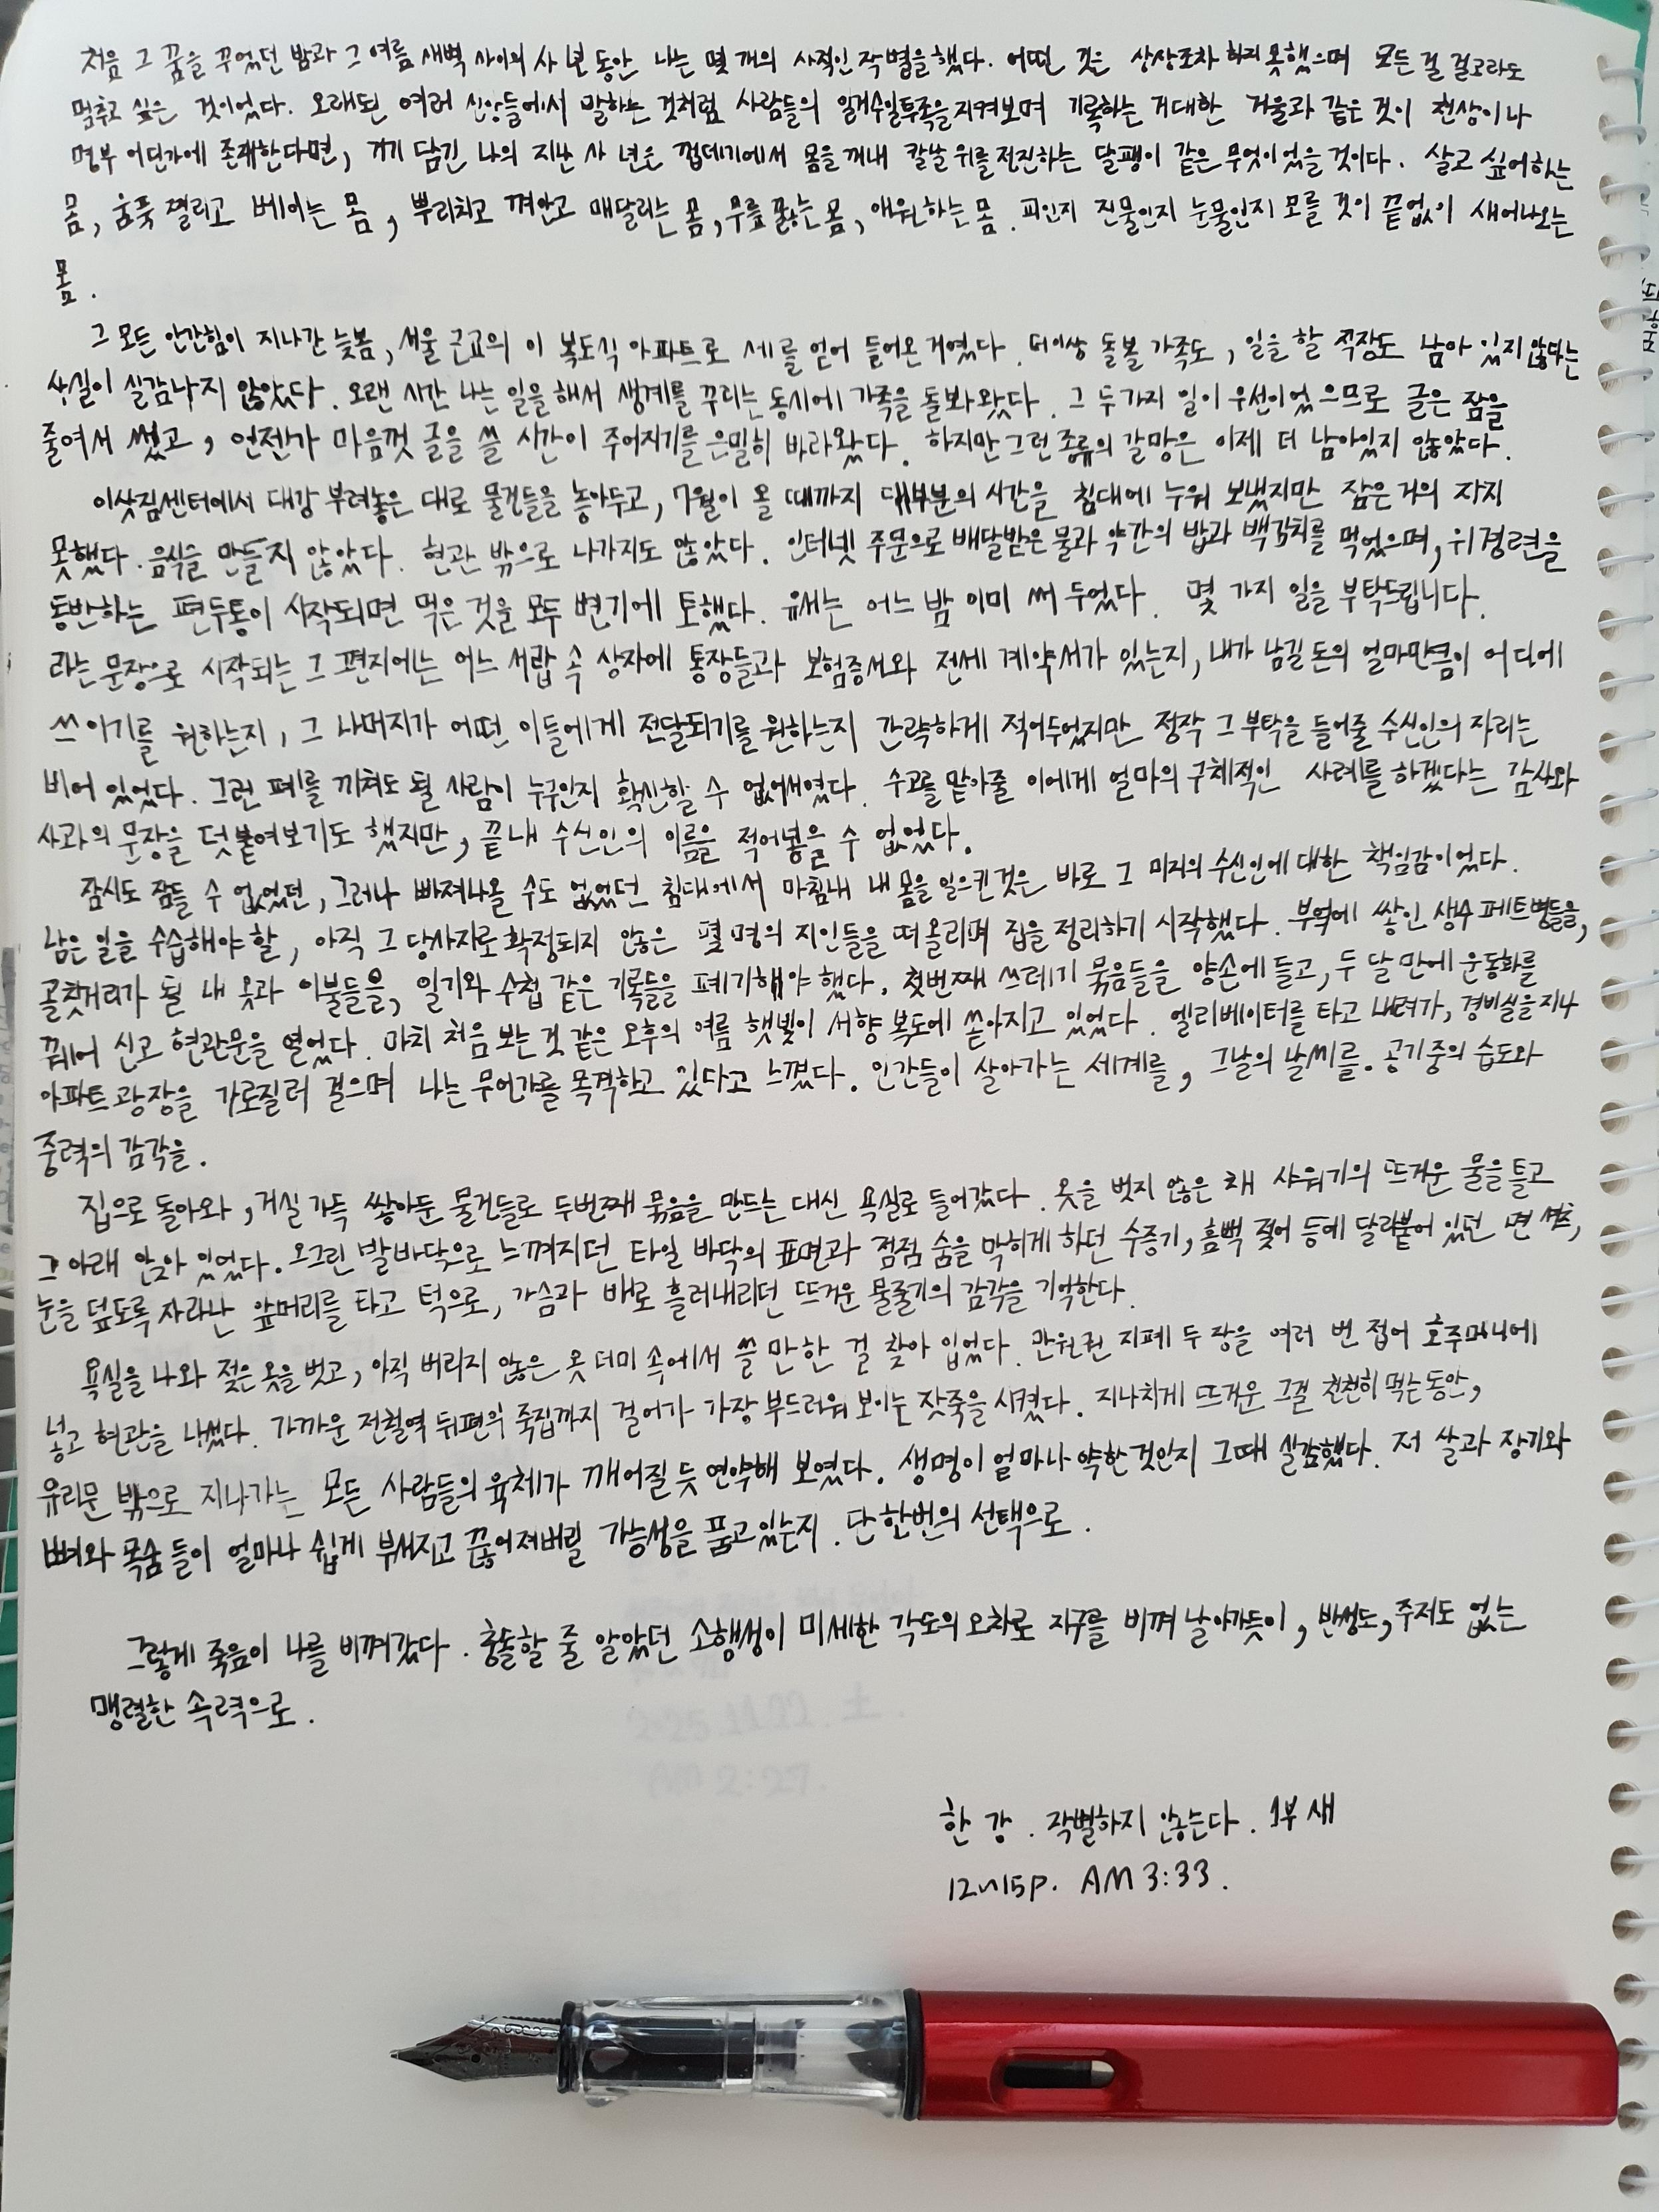 처음 그 꿈을 꾸었던 밤과 그 여름 새벽 사이의 사 년 동안 나는 몇 개의 사적인 작별을 했다. 어떤 것은 상상조차 하지 못했으며 모든 걸 걸고라도
멈추고 싶은 것이었다. 오래된 여러 신앙들에서 말하는 것처럼 사람들의 일거수일투족을 지켜보며 기록하는 거대한 거울과 같은 것이 천상이나
명부 어딘가에 존재한다면, 거기 담긴 나의 지난 사 년은 껍데기에서 몸을 꺼내 칼날 위를 전진하는 달팽이 같은 무엇이었을 것이다. 살고 싶어하는
몸, 움푹 찔리고 베이는 몸, 뿌리치고 껴안고 매달리는 몸, 무릎 꿇는 몸, 애원하는 몸. 피인지 진물인지 눈물인지 모를 것이 끝없이 새어나오는
몸.
그 모든 안간힘이 지나간 늦봄, 서울 근교의 이 복도식 아파트로 세를 얻어 들어온 거였다. 더이상 돌볼 가족도, 일을 할 직장도 남아 있지 않다는
사실이 실감나지 않았다. 오랜 시간 나는 일을 해서 생계를 꾸리는 동시에 가족을 돌봐왔다. 그 두가지 일이 우선이었으므로 글은 잠을
줄여서 썼고, 언젠가 마음껏 글을 쓸 시간이 주어지기를 은밀히 바라왔다. 하지만 그런 종류의 갈망은 이제 더 남아있지 않았다.
이삿짐센터에서 대강 부려놓은 대로 물건들을 놓아두고, 7월이 올 때까지 대부분의 시간을 침대에 누워 보냈지만 잠은 거의 자지
못했다. 음식을 만들지 않았다. 현관 밖으로 나가지도 않았다. 인터넷 주문으로 배달받은 물과 약간의 밥과 백김치를 먹었으며, 위경련을
동반하는 편두통이 시작되면 먹은 것을 모두 변기에 토했다. 유서는 어느 밤 이미 써 두었다. 몇 가지 일을 부탁드립니다.
라는 문장으로 시작되는 그 편지에는 어느 서랍 속 상자에 통장들과 보험증서와 전세 계약서가 있는지, 내가 남길 돈의 얼마만큼이 어디에
쓰이기를 원하는지, 그 나머지가 어떤 이들에게 전달되기를 원하는지 간략하게 적어두었지만 정작 그 부탁을 들어줄 수신인의 자리는
비어 있었다. 그런 폐를 끼쳐도 될 사람이 누구인지 확신할 수 없어서였다. 수고를 맡아줄 이에게 얼마의 구체적인 사례를 하겠다는 감사와
사과의 문장을 덧붙여보기도 했지만, 끝내 수신인의 이름을 적어넣을 수 없었다.
잠시도 잠들 수 없었던, 그러나 빠져나올 수도 없었던 침대에서 마침내 내 몸을 일으킨것은 바로 그 미지의 수신인에 대한 책임감이었다.
남은 일을 수습해야 할, 아직 그 당사자로 확정되지 않은 몇 명의 지인들을 떠올리며 집을 정리하기 시작했다. 부엌에 쌓인 생수 페트병들을,
골칫거리가 될 내 옷과 이불들을, 일기와 수첩 같은 기록들을 폐기해야 했다. 첫번째 쓰레기 묶음들을 양손에 들고, 두 달 만에 운동화를
꿰어 신고 현관문을 열었다. 마치 처음 보는 것 같은 오후의 여름 햇빛이 서향 복도에 쏟아지고 있었다. 엘리베이터를 타고 내려가, 경비실을 지나
아파트 광장을 가로질러 걸으며 나는 무언가를 목격하고 있다고 느꼈다. 인간들이 살아가는 세계를, 그날의 날씨를. 공기 중의 습도와
중력의 감각을.
집으로 돌아와, 거실 가득 쌓아둔 물건들로 두번째 묶음을 만드는 대신 욕실로 들어갔다. 옷을 벗지 않은 채 샤워기의 뜨거운 물을 틀고
그 아래 앉아 있었다. 오그린 발바닥으로 느껴지던 타일 바닥의 표면과 점점 숨을 막히게 하던 수증기, 흠뻑 젖어 등에 달라붙어 있던 면 셔츠,
눈을 덮도록 자라난 앞머리를 타고 턱으로, 가슴과 배로 흘러내리던 뜨거운 물줄기의 감각을 기억한다.
욕실을 나와 젖은 옷을 벗고, 아직 버리지 않은 옷 더미 속에서 쓸 만한 걸 찾아 입었다. 만원권 지폐 두 장을 여러 번 접어 호주머니에
넣고 현관을 나섰다. 가까운 전철역 뒤편의 죽집까지 걸어가 가장 부드러워 보이는 잣죽을 시켰다. 지나치게 뜨거운 그걸 천천히 먹는 동안,
유리문 밖으로 지나가는 모든 사람들의 육체가 깨어질 듯 연약해 보였다. 생명이 얼마나 약한 것인지 그때 실감했다. 저 살과 장기와
뼈와 목숨 들이 얼마나 쉽게 부서지고 끊어져버릴 가능성을 품고 있는지. 단 한번의 선택으로.
그렇게 죽음이 나를 비껴갔다. 충돌할 줄 알았던 소행성이 미세한 각도의 오차로 지구를 비껴 날아가듯이, 반성도, 주저도 없는
맹렬한 속력으로.
한 강. 작별하지 않는다. 1부 새
12~15p. AM 3:33.